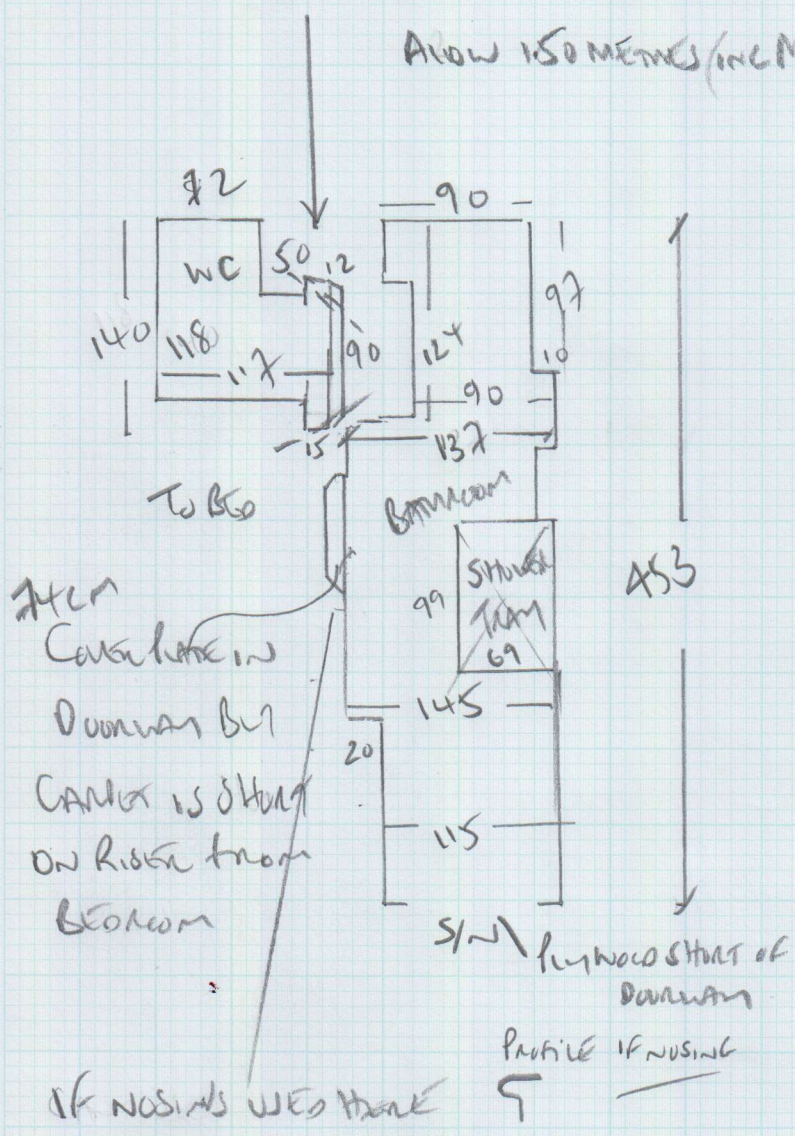 ALLOW 1.50 METRES (INC
12
90
WC
50
12
97
140
118
117
90
124
10
90
15
137
TO BED
BATHROOM
SHOWER
TRAY
99
69
453
74CM
COVER PLATE IN
DOORWAY BUT
CARPET IS SHORT
ON RISER FROM
BEDROOM
145
20
115
S/N
PLYWOOD SHORT OF
DOORWAY
PROFILE IF NOSING
IF NOSING USED HERE